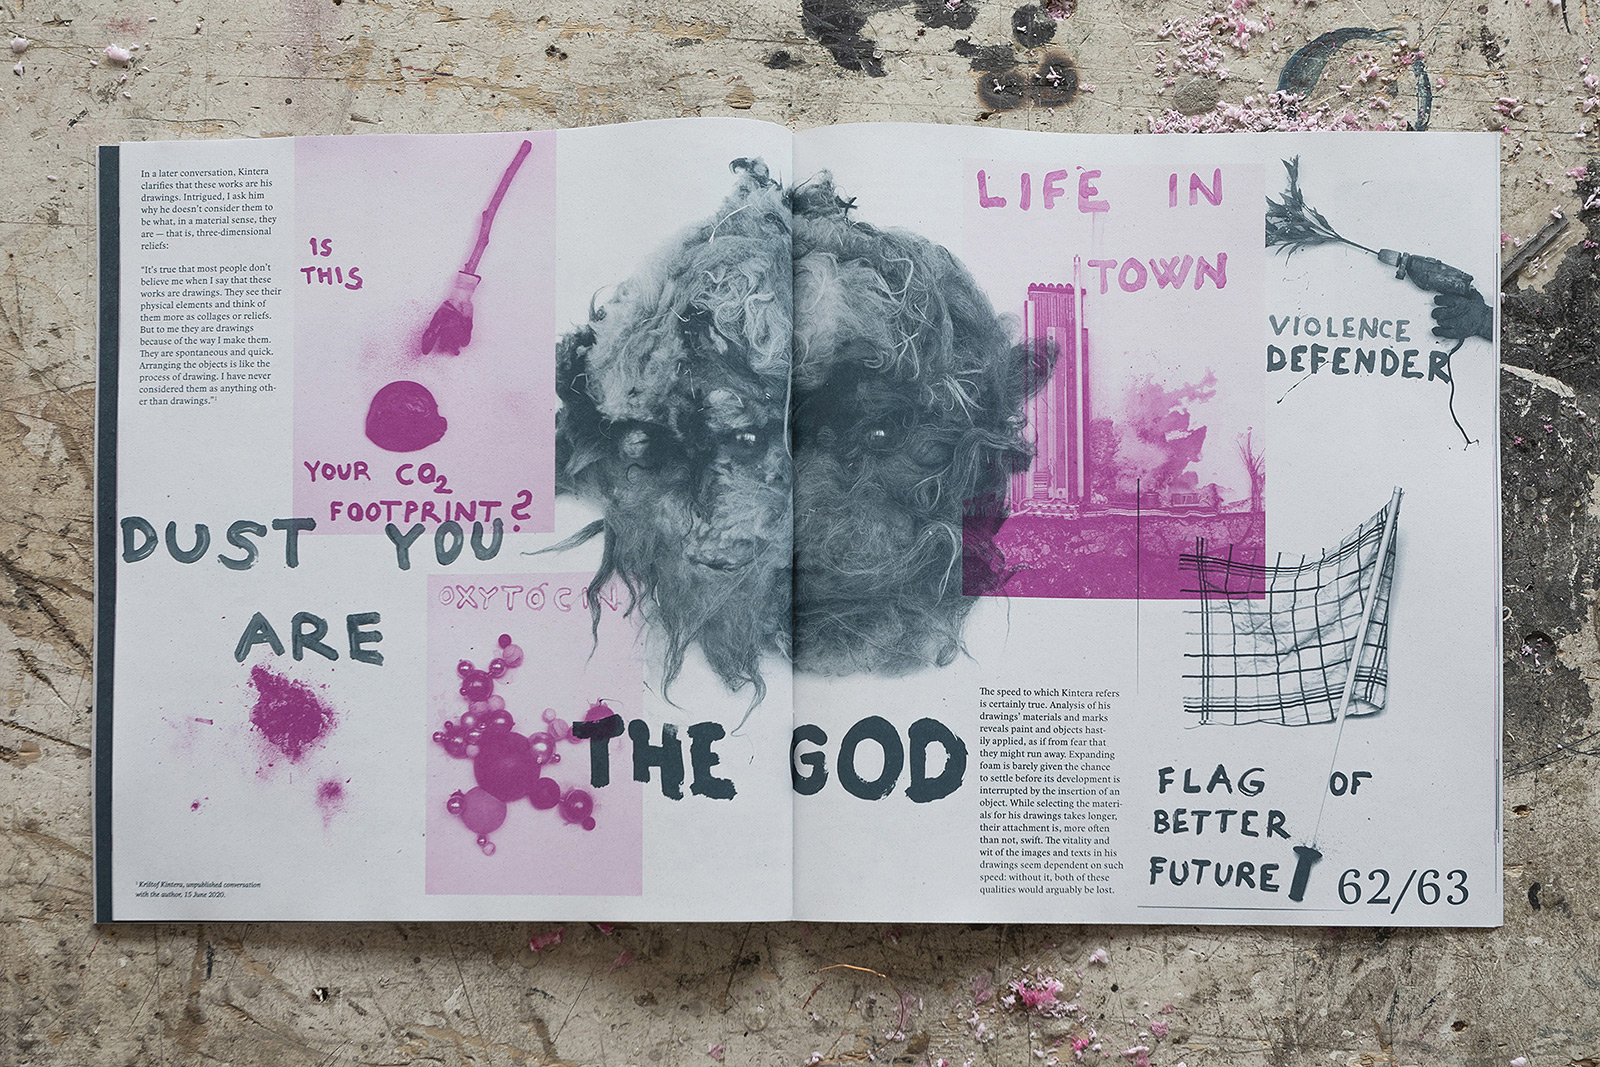 In a later conversation, Kintera
clarifies that these works are his
drawings. Intrigued, I ask him
why he doesn't consider them to
be what, in a material sense, they
are — that is, three-dimensional
reliefs:
"It's true that most people don't
believe me when I say that these
works are drawings. They see their
physical elements and think of
them more as collages or reliefs.
But to me they are drawings
because of the way I make them.
They are spontaneous and quick.
Arranging the objects is like the
process of drawing. I have never
considered them as anything oth-
er than drawings."¹
IS
THIS
YOUR CO₂
FOOTPRINT?
DUST YOU
ARE
OXYTOCIN
THE GOD
¹ Krištof Kintera, unpublished conversation
with the author, 15 June 2020.
LIFE IN
TOWN
VIOLENCE
DEFENDER
The speed to which Kintera refers
is certainly true. Analysis of his
drawings' materials and marks
reveals paint and objects hast-
ily applied, as if from fear that
they might run away. Expanding
foam is barely given the chance
to settle before its development is
interrupted by the insertion of an
object. While selecting the materi-
als for his drawings takes longer,
their attachment is, more often
than not, swift. The vitality and
wit of the images and texts in his
drawings seem dependent on such
speed: without it, both of these
qualities would arguably be lost.
FLAG OF
BETTER
FUTURE
62/63